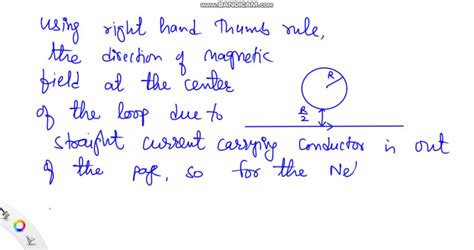 www.BANDICAM.com
Using right hand Thumb rule,
the direction of magnetic
field at the center
R
of the loop due to
R/2
straight current carrying conductor is out
of the page, so for the Ne